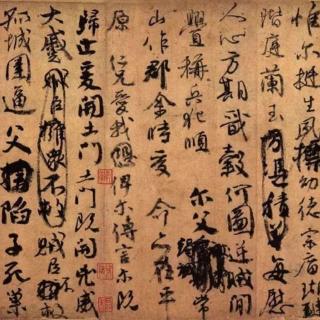 惟爾挺生夙標幼德宗廟瑚璉
階庭蘭玉方憑積善每慰
人心方期戩穀何圖逆賊間
釁稱兵犯順爾父竭誠常
山作郡余時受命亦在平
原仁兄愛我俾爾傳言爾既
歸止爰開土門土門既開凶威
大蹙賊臣擁眾不救賊臣不救
孤城圍逼父陷子死巢